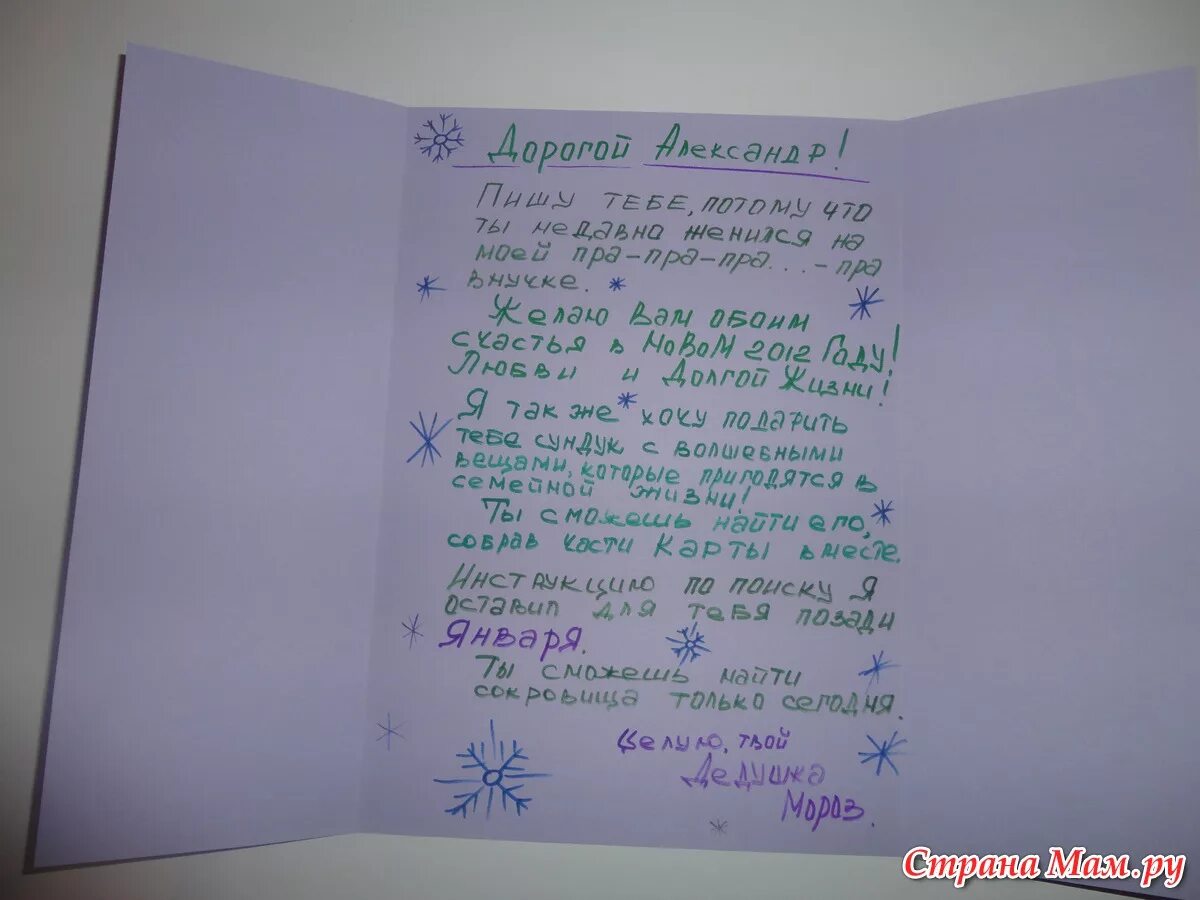 Дорогой Александр!
Пишу тебе, потому что
ты недавно женился на
моей пра-пра-пра...-пра
внучке.
Желаю Вам обоим
счастья в Новом 2012 Году!
Любви и Долгой Жизни!
Я так же хочу подарить
тебе сундук с волшебными
вещами, которые пригодятся в
семейной жизни!
Ты сможешь найти его,
собрав части Карты вместе.
Инструкцию по поиску Я
оставил для тебя позади
Января.
Ты сможешь найти
сокровища только сегодня.
Целую, твой
Дедушка
Мороз.
Страна Мам.ру